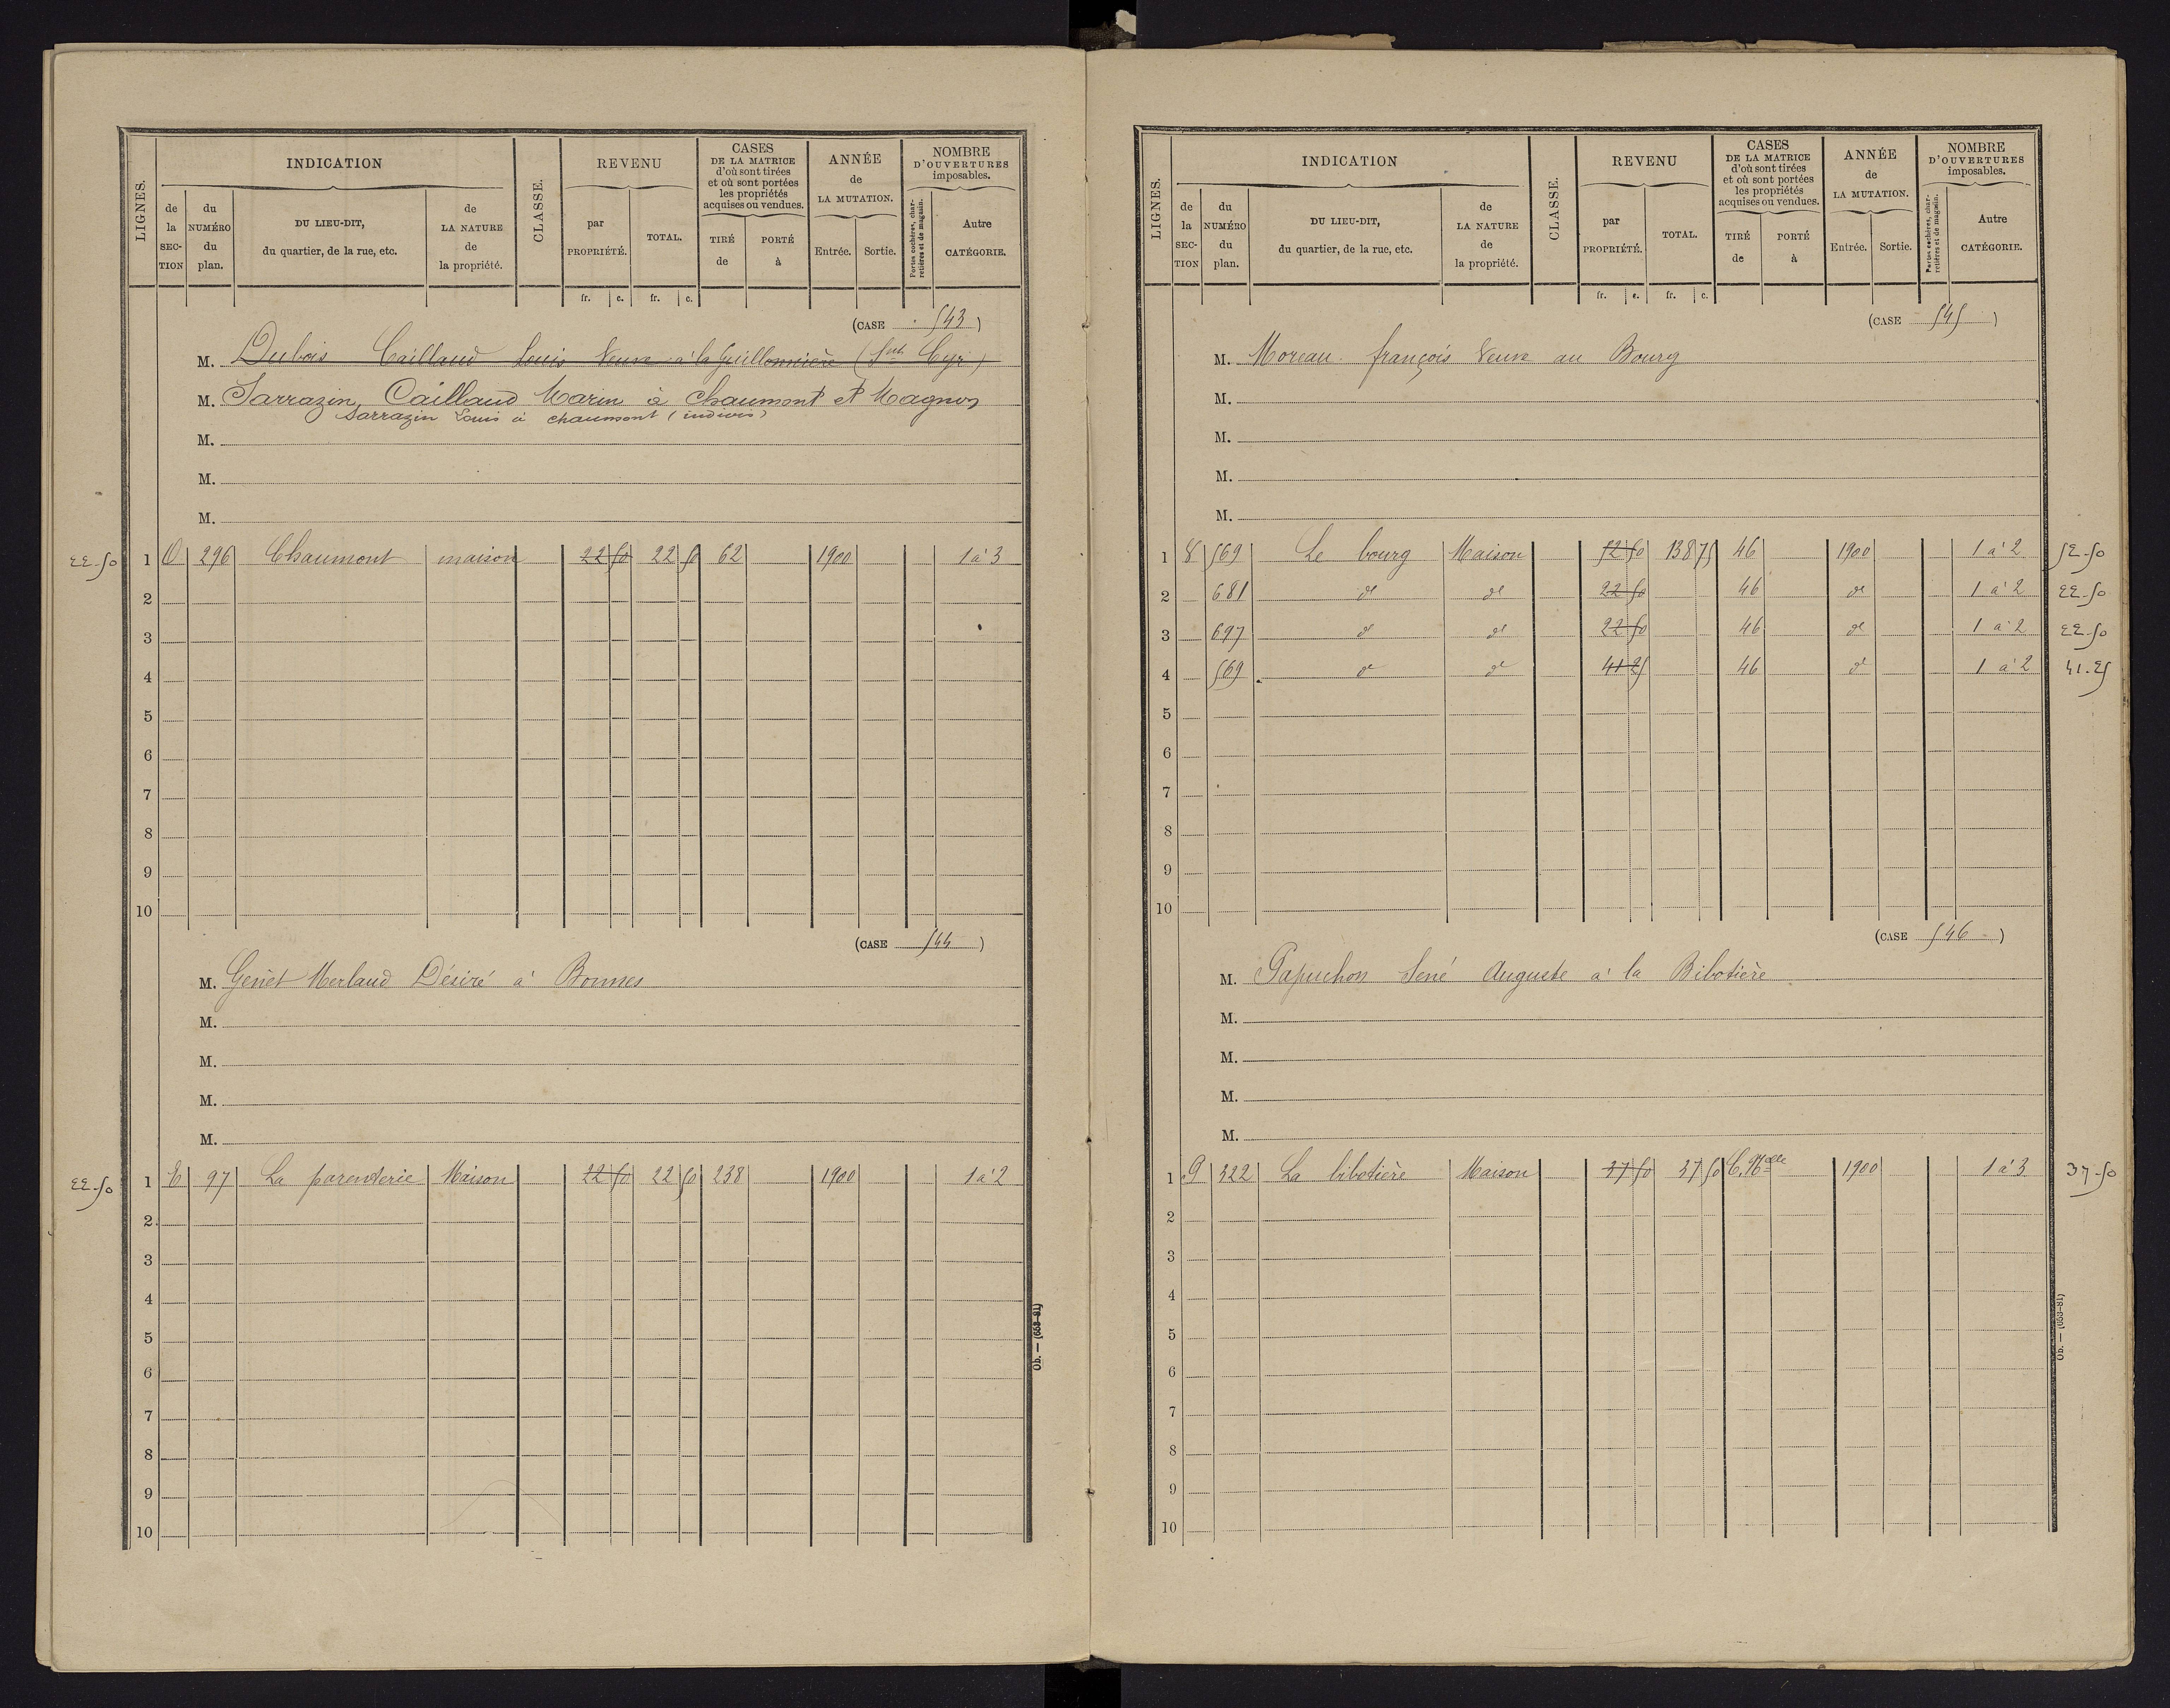 LIGNES.
INDICATION
de la SECTION
du NUMÉRO du plan.
DU LIEU-DIT, du quartier, de la rue, etc.
de LA NATURE de la propriété.
CLASSE.
REVENU
par PROPRIÉTÉ.
TOTAL.
CASES DE LA MATRICE d'où sont tirées et où sont portées les propriétés acquises ou vendues.
TIRÉ de
PORTÉ à
ANNÉE de LA MUTATION.
Entrée.
Sortie.
NOMBRE D'OUVERTURES imposables.
Portes cochères, charretières et de magasin.
Autre CATÉGORIE.
fr. c. fr. c.
(CASE 543)
M. Dubois Caillaud Louis Veuve à la Guillonnière (Snt Cyr)
M. Sarrazin Caillaud Marin à Chaumont et Magnos
Sarrazin Louis à chaumont (indivis)
M.
M.
M.
22.50 1 O 296 Chaumont maison 22 50 22 50 62 1900 1 à 3
2
3
4
5
6
7
8
9
10
(CASE 544)
M. Genet Merlaud Désiré à Bonnes
M.
M.
M.
M.
22.50 1 E 97 La parenterie Maison 22 50 22 50 238 1900 1 à 2
2
3
4
5
6
7
8
9
10
Ob. — (653-81)
LIGNES.
INDICATION
de la SECTION
du NUMÉRO du plan.
DU LIEU-DIT, du quartier, de la rue, etc.
de LA NATURE de la propriété.
CLASSE.
REVENU
par PROPRIÉTÉ.
TOTAL.
CASES DE LA MATRICE d'où sont tirées et où sont portées les propriétés acquises ou vendues.
TIRÉ de
PORTÉ à
ANNÉE de LA MUTATION.
Entrée.
Sortie.
NOMBRE D'OUVERTURES imposables.
Portes cochères, charretières et de magasin.
Autre CATÉGORIE.
fr. c. fr. c.
(CASE 545)
M. Moreau françois Veuve au Bourg
M.
M.
M.
M.
1 8 569 Le bourg Maison 52 50 138 75 46 1900 1 à 2 52.50
2 681 d° d° 22 50 46 d° 1 à 2 22.50
3 697 d° d° 22 50 46 d° 1 à 2 22.50
4 569 d° d° 41 25 46 d° 1 à 2 41.25
5
6
7
8
9
10
(CASE 546)
M. Papuchon Sené Auguste à la Bibotière
M.
M.
M.
M.
1 9 322 La bibotière Maison 37 50 37 50 1900 1 à 3 37.50
2
3
4
5
6
7
8
9
10
Ob. — (653-81)